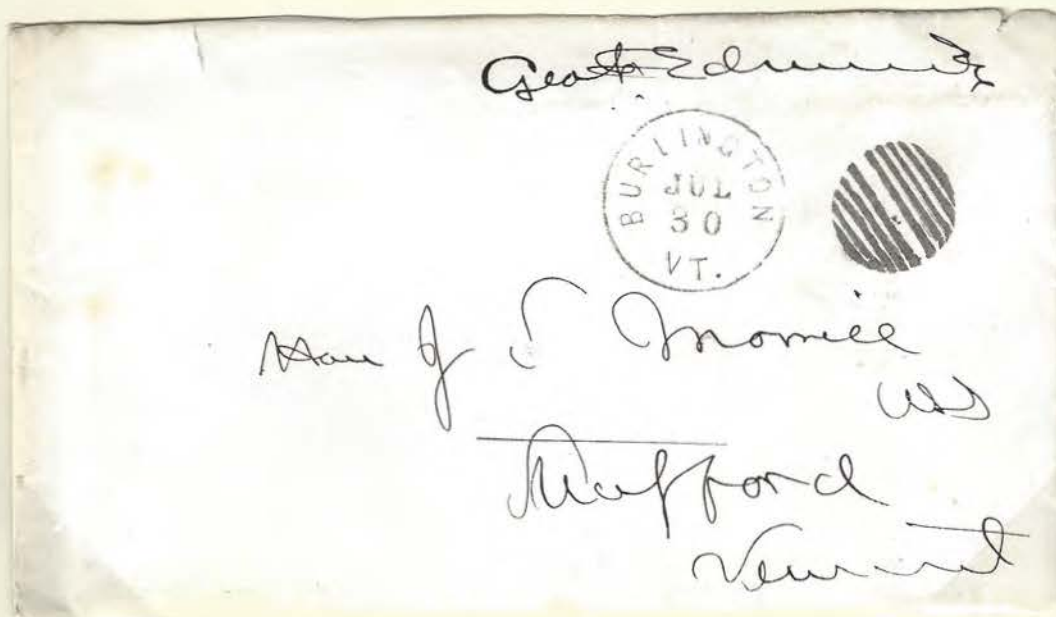 Geo F Edmunds
BURLINGTON
JUL
30
VT.
Hon J S Morrill
USS
Strafford
Vermont